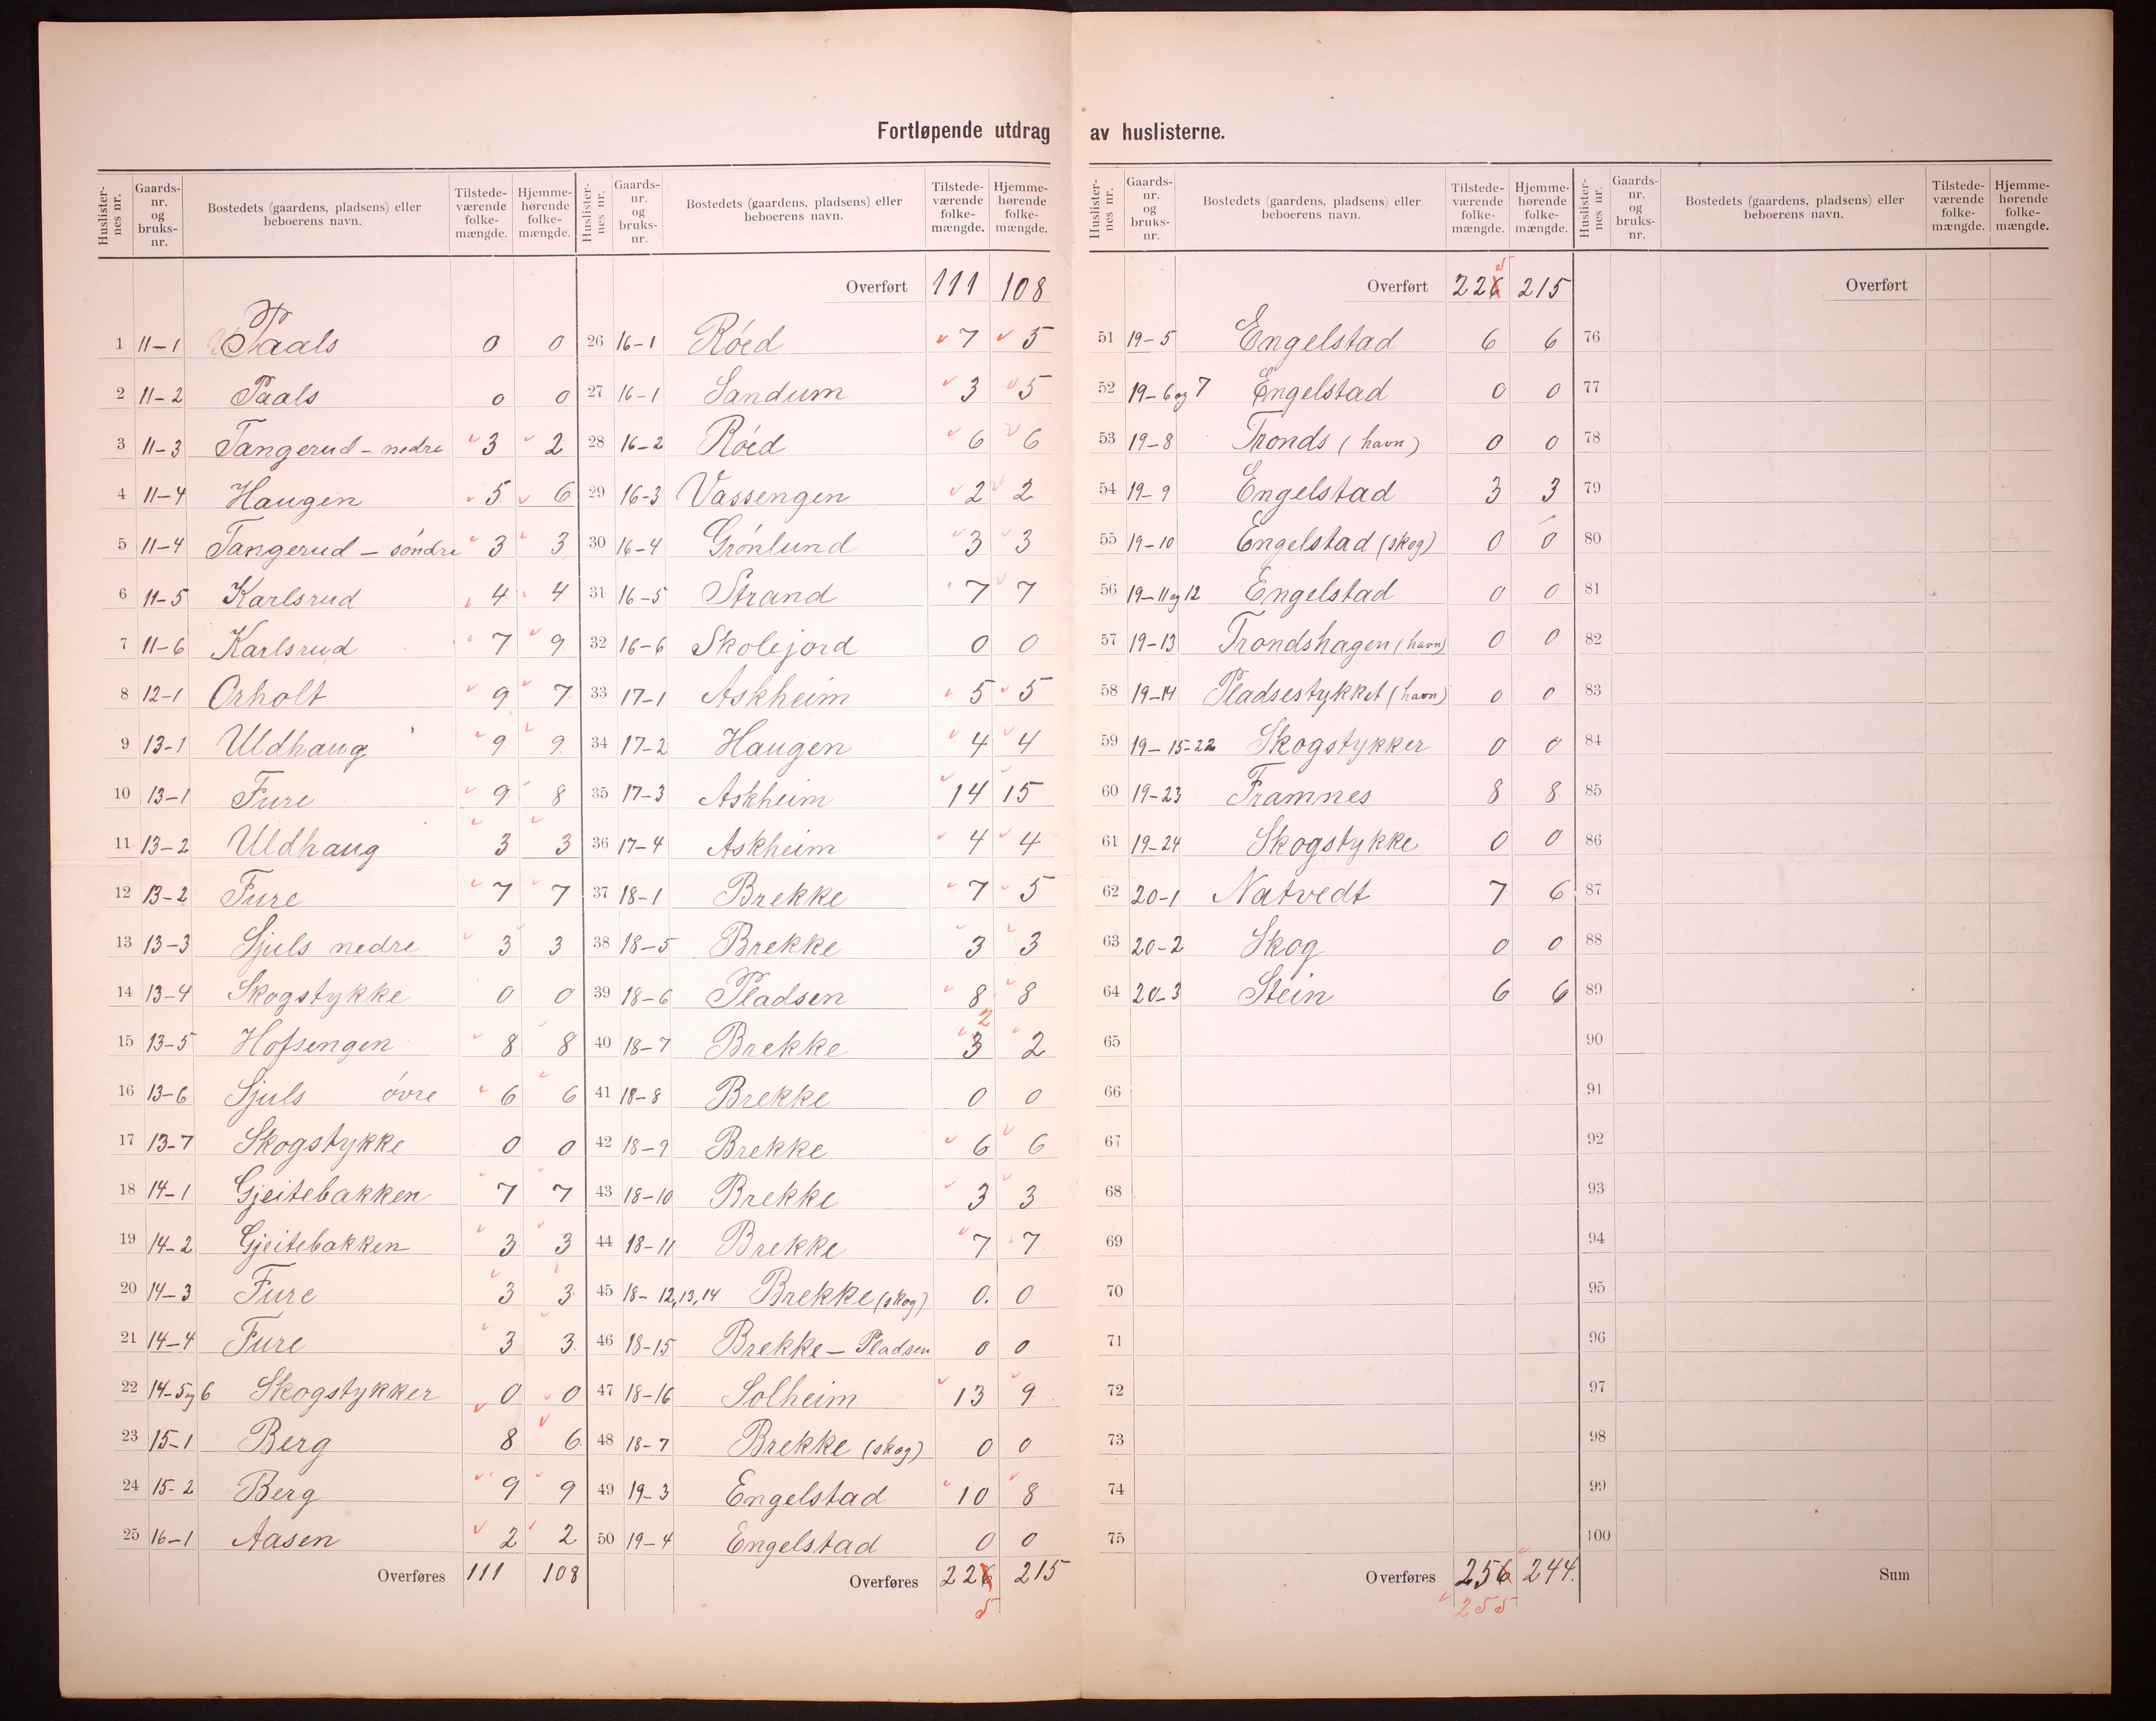 Fortløpende utdrag av huslisterne.
Huslister-nes nr. Gaards-nr. og bruks-nr. Bostedets (gaardens, pladsens) eller beboerens navn. Tilstede-værende folke-mængde. Hjemme-hørende folke-mængde.
1 11-1 Paals 0 0
2 11-2 Paals 0 0
3 11-3 Tangerud - nedre 3 2
4 11-4 Haugen 5 6
5 11-4 Tangerud - söndre 3 3
6 11-5 Karlsrud 4 4
7 11-6 Karlsrud 7 9
8 12-1 Orholt 9 7
9 13-1 Uldhaug 9 9
10 13-1 Fure 9 8
11 13-2 Uldhaug 3 3
12 13-2 Fure 7 7
13 13-3 Sjuls nedre 3 3
14 13-4 Skogstykke 0 0
15 13-5 Hofsengen 8 8
16 13-6 Sjuls övre 6 6
17 13-7 Skogstykke 0 0
18 14-1 Gjeitebakken 7 7
19 14-2 Gjeitebakken 3 3
20 14-3 Fure 3 3
21 14-4 Fure 3 3
22 14-5 og 6 Skogstykker 0 0
23 15-1 Berg 8 6
24 15-2 Berg 9 9
25 16-1 Aasen 2 2
Overføres 111 108
Huslister-nes nr. Gaards-nr. og bruks-nr. Bostedets (gaardens, pladsens) eller beboerens navn. Tilstede-værende folke-mængde. Hjemme-hørende folke-mængde.
Overført 111 108
26 16-1 Röed 7 5
27 16-1 Sandum 3 5
28 16-2 Röed 6 6
29 16-3 Vassengen 2 2
30 16-4 Grönlund 3 3
31 16-5 Strand 7 7
32 16-6 Skolejord 0 0
33 17-1 Askheim 5 5
34 17-2 Haugen 4 4
35 17-3 Askheim 14 15
36 17-4 Askheim 4 4
37 18-1 Brekke 7 5
38 18-5 Brekke 3 3
39 18-6 Pladsen 8 8
40 18-7 Brekke 3 2 2
41 18-8 Brekke 0 0
42 18-9 Brekke 6 6
43 18-10 Brekke 3 3
44 18-11 Brekke 7 7
45 18-12,13,14 Brekke (skog) 0. 0
46 18-15 Brekke - Pladsen 0 0
47 18-16 Solheim 13 9
48 18-7 Brekke (skog) 0 0
49 19-3 Engelstad 10 8
50 19-4 Engelstad 0 0
Overføres 226 215
5
Huslister-nes nr. Gaards-nr. og bruks-nr. Bostedets (gaardens, pladsens) eller beboerens navn. Tilstede-værende folke-mængde. Hjemme-hørende folke-mængde.
Overført 226 5 215
51 19-5 Engelstad 6 6
52 19-6 og 7 Engelstad 0 0
53 19-8 Tronds (havn) 0 0
54 19-9 Engelstad 3 3
55 19-10 Engelstad (skog) 0 0
56 19-11 og 12 Engelstad 0 0
57 19-13 Trondshagen (havn) 0 0
58 19-14 Pladsestykket (havn) 0 0
59 19-15-22 Skogstykker 0 0
60 19-23 Framnes 8 8
61 19-24 Skogstykke 0 0
62 20-1 Natvedt 7 6
63 20-2 Skog 0 0
64 20-3 Stein 6 6
65
66
67
68
69
70
71
72
73
74
75
Overføres 256 244.
255
Huslister-nes nr. Gaards-nr. og bruks-nr. Bostedets (gaardens, pladsens) eller beboerens navn. Tilstede-værende folke-mængde. Hjemme-hørende folke-mængde.
Overført
76
77
78
79
80
81
82
83
84
85
86
87
88
89
90
91
92
93
94
95
96
97
98
99
100
Sum